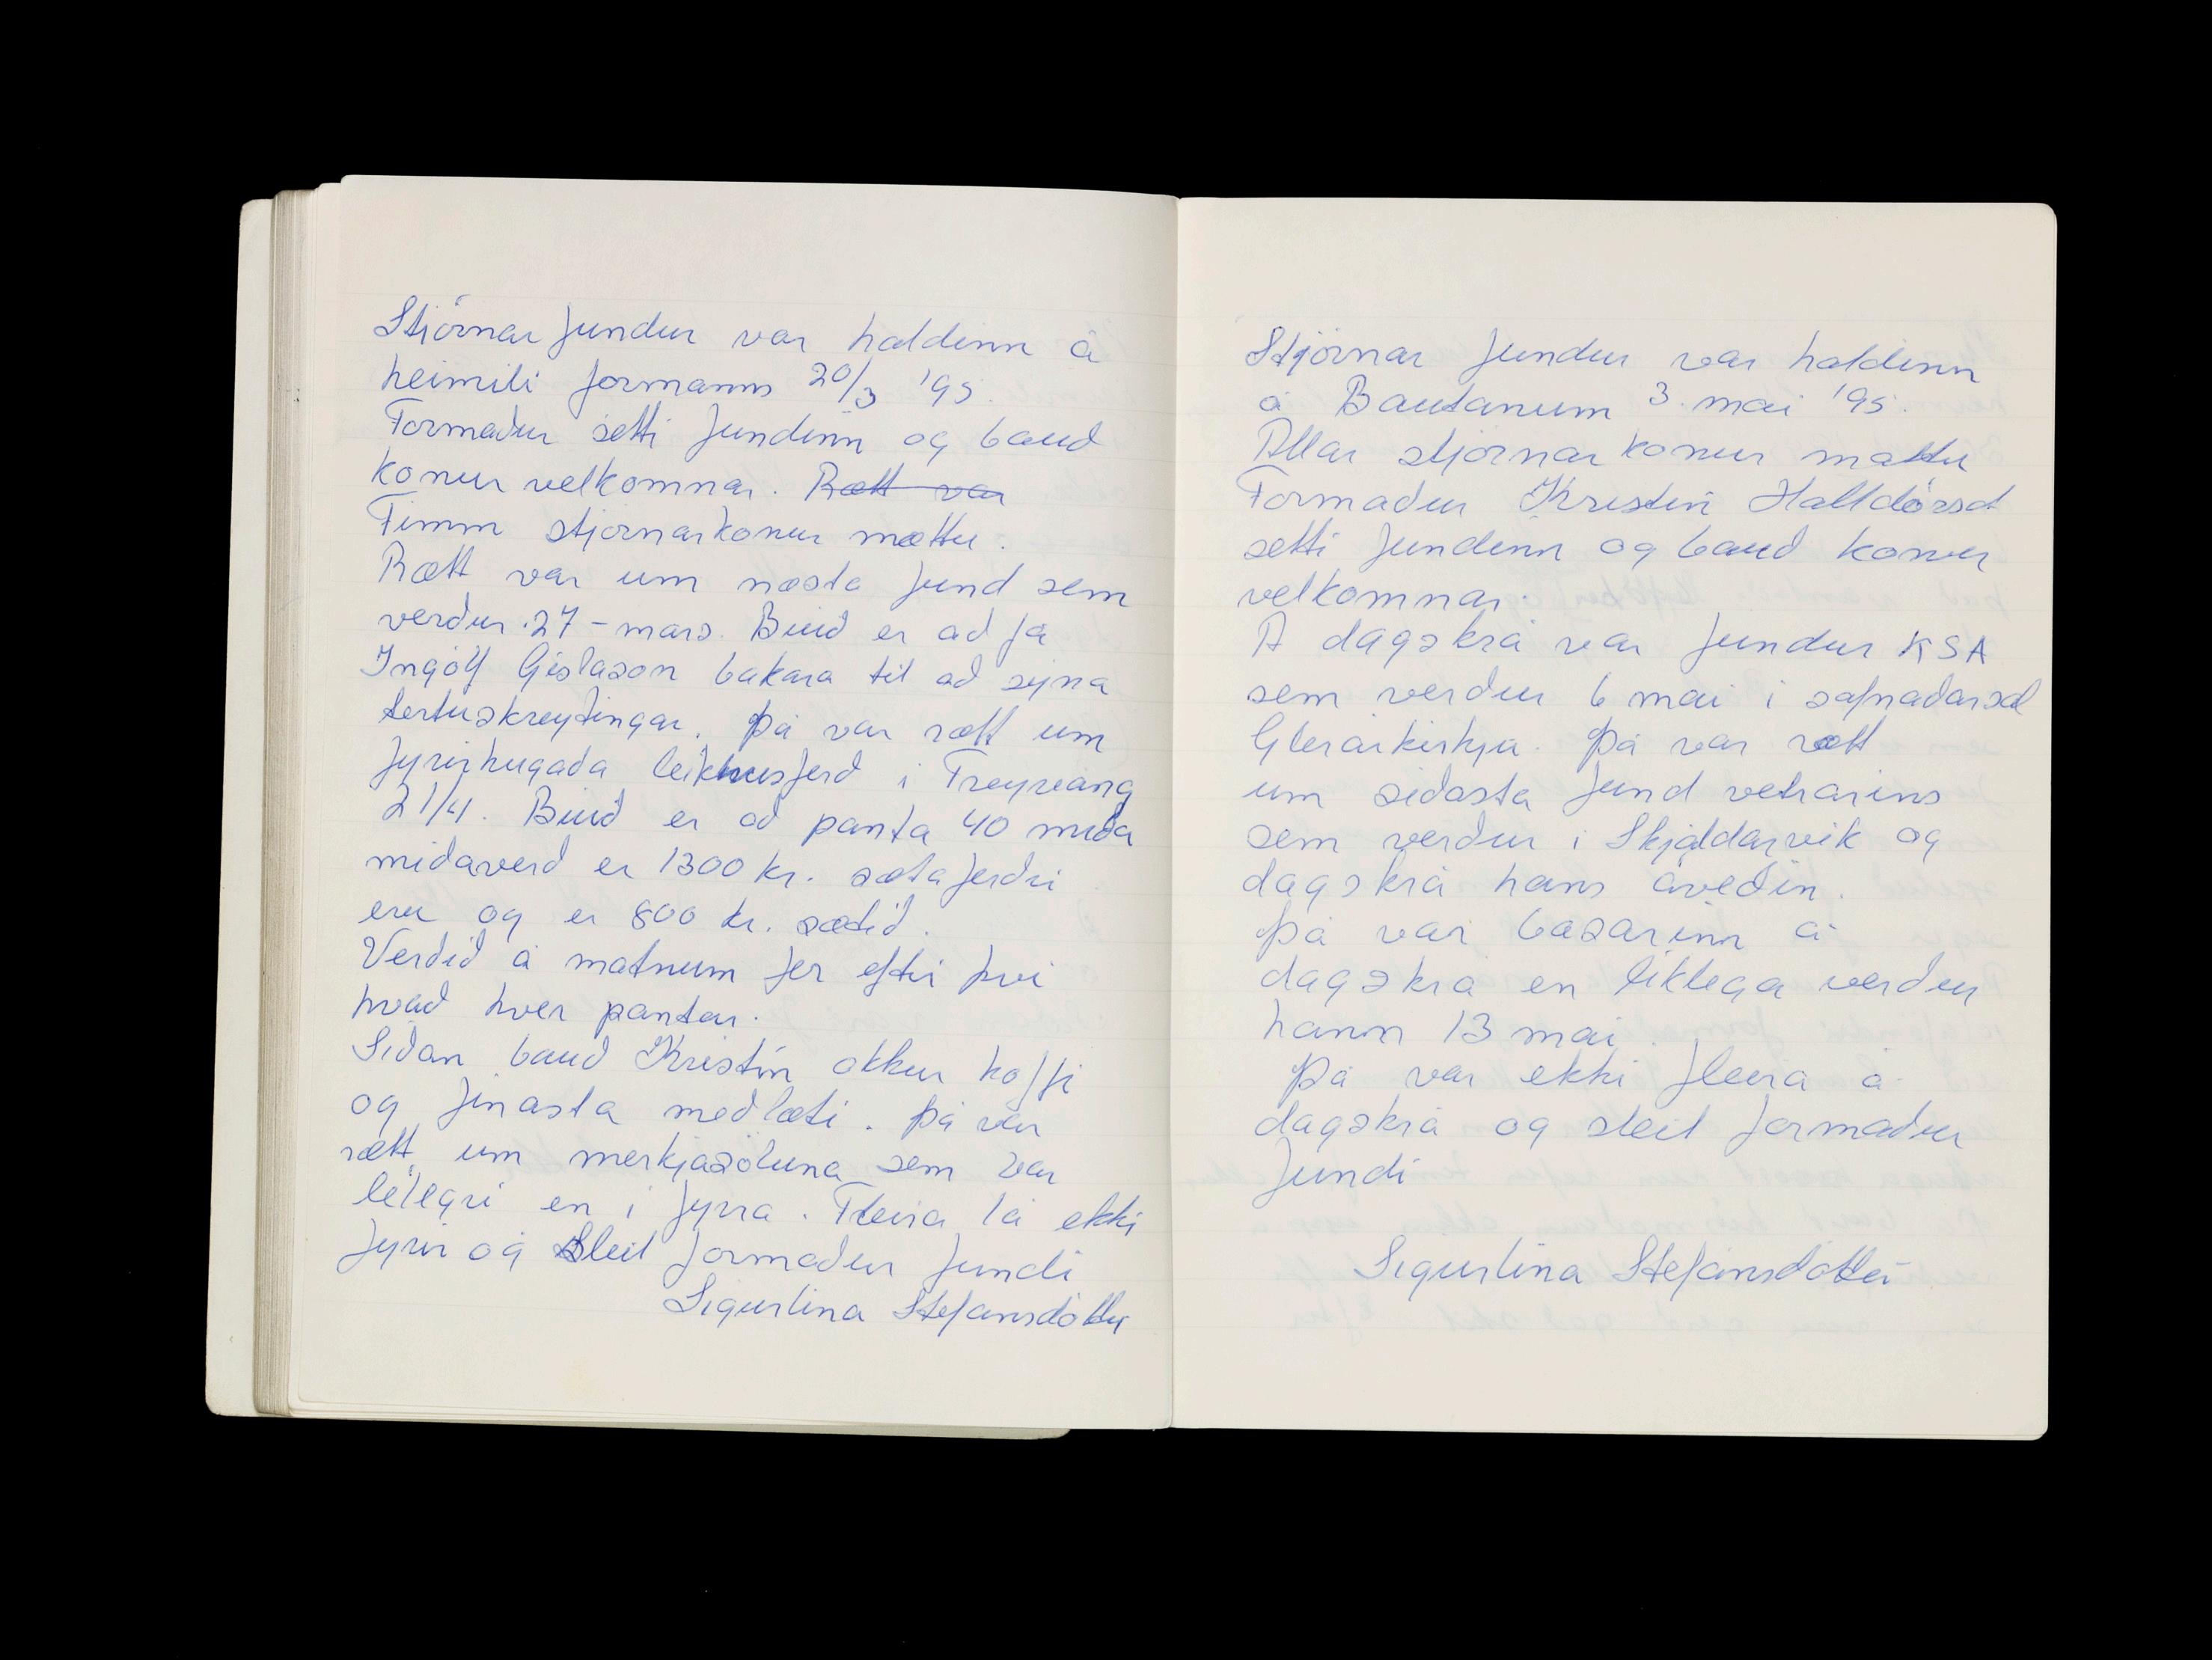 Stjórnarfundur var haldinn á
heimili formanns 20/3 '95.
Formaður setti fundinn og bauð
konur velkomnar. Rætt var
Fimm stjórnarkonur mættu.
Rætt var um næsta fund sem
verður 27-mars. Buið er að fá
Ingólf Gíslason bakara til að sýna
tertuskreytingar. Þá var rætt um
fyrirhugaða leikhusferð i Freyvang
21/4. Buið er að panta 40 miða
miðaverð er 1300 kr. sætaferðir
eru og er 800 kr. sætið.
Verðið á matnum fer eftir þvi
hvað hver pantar.
Siðan bauð Kristín okkur kaffi
og finasta meðlæti. Þá var
rætt um merkjasöluna sem var
lélegri en i fyrra. Fleira lá ekki
fyrir og sleit formaður fundi
Sigurlina Stefánsdóttir
Stjórnar fundur var haldinn
á Bautanum 3. mai '95.
Allar stjórnarkonur mættu
Formaður Kristín Halldórsd
setti fundinn og bauð konur
velkomnar.
Á dagskrá var fundur KSA
sem verður 6 mai i safnaðarsal
Glerárkirkju. Þá var rætt
um siðasta fund vetrarins
sem verður i Skjaldarvik og
dagskrá hans áveðin.
Þá var basarinn á
dagskrá en liklega verður
hann 13 mai.
Þá var ekki fleira á
dagskrá og sleit formaður
fundi
Sigurlina Stefánsdóttir